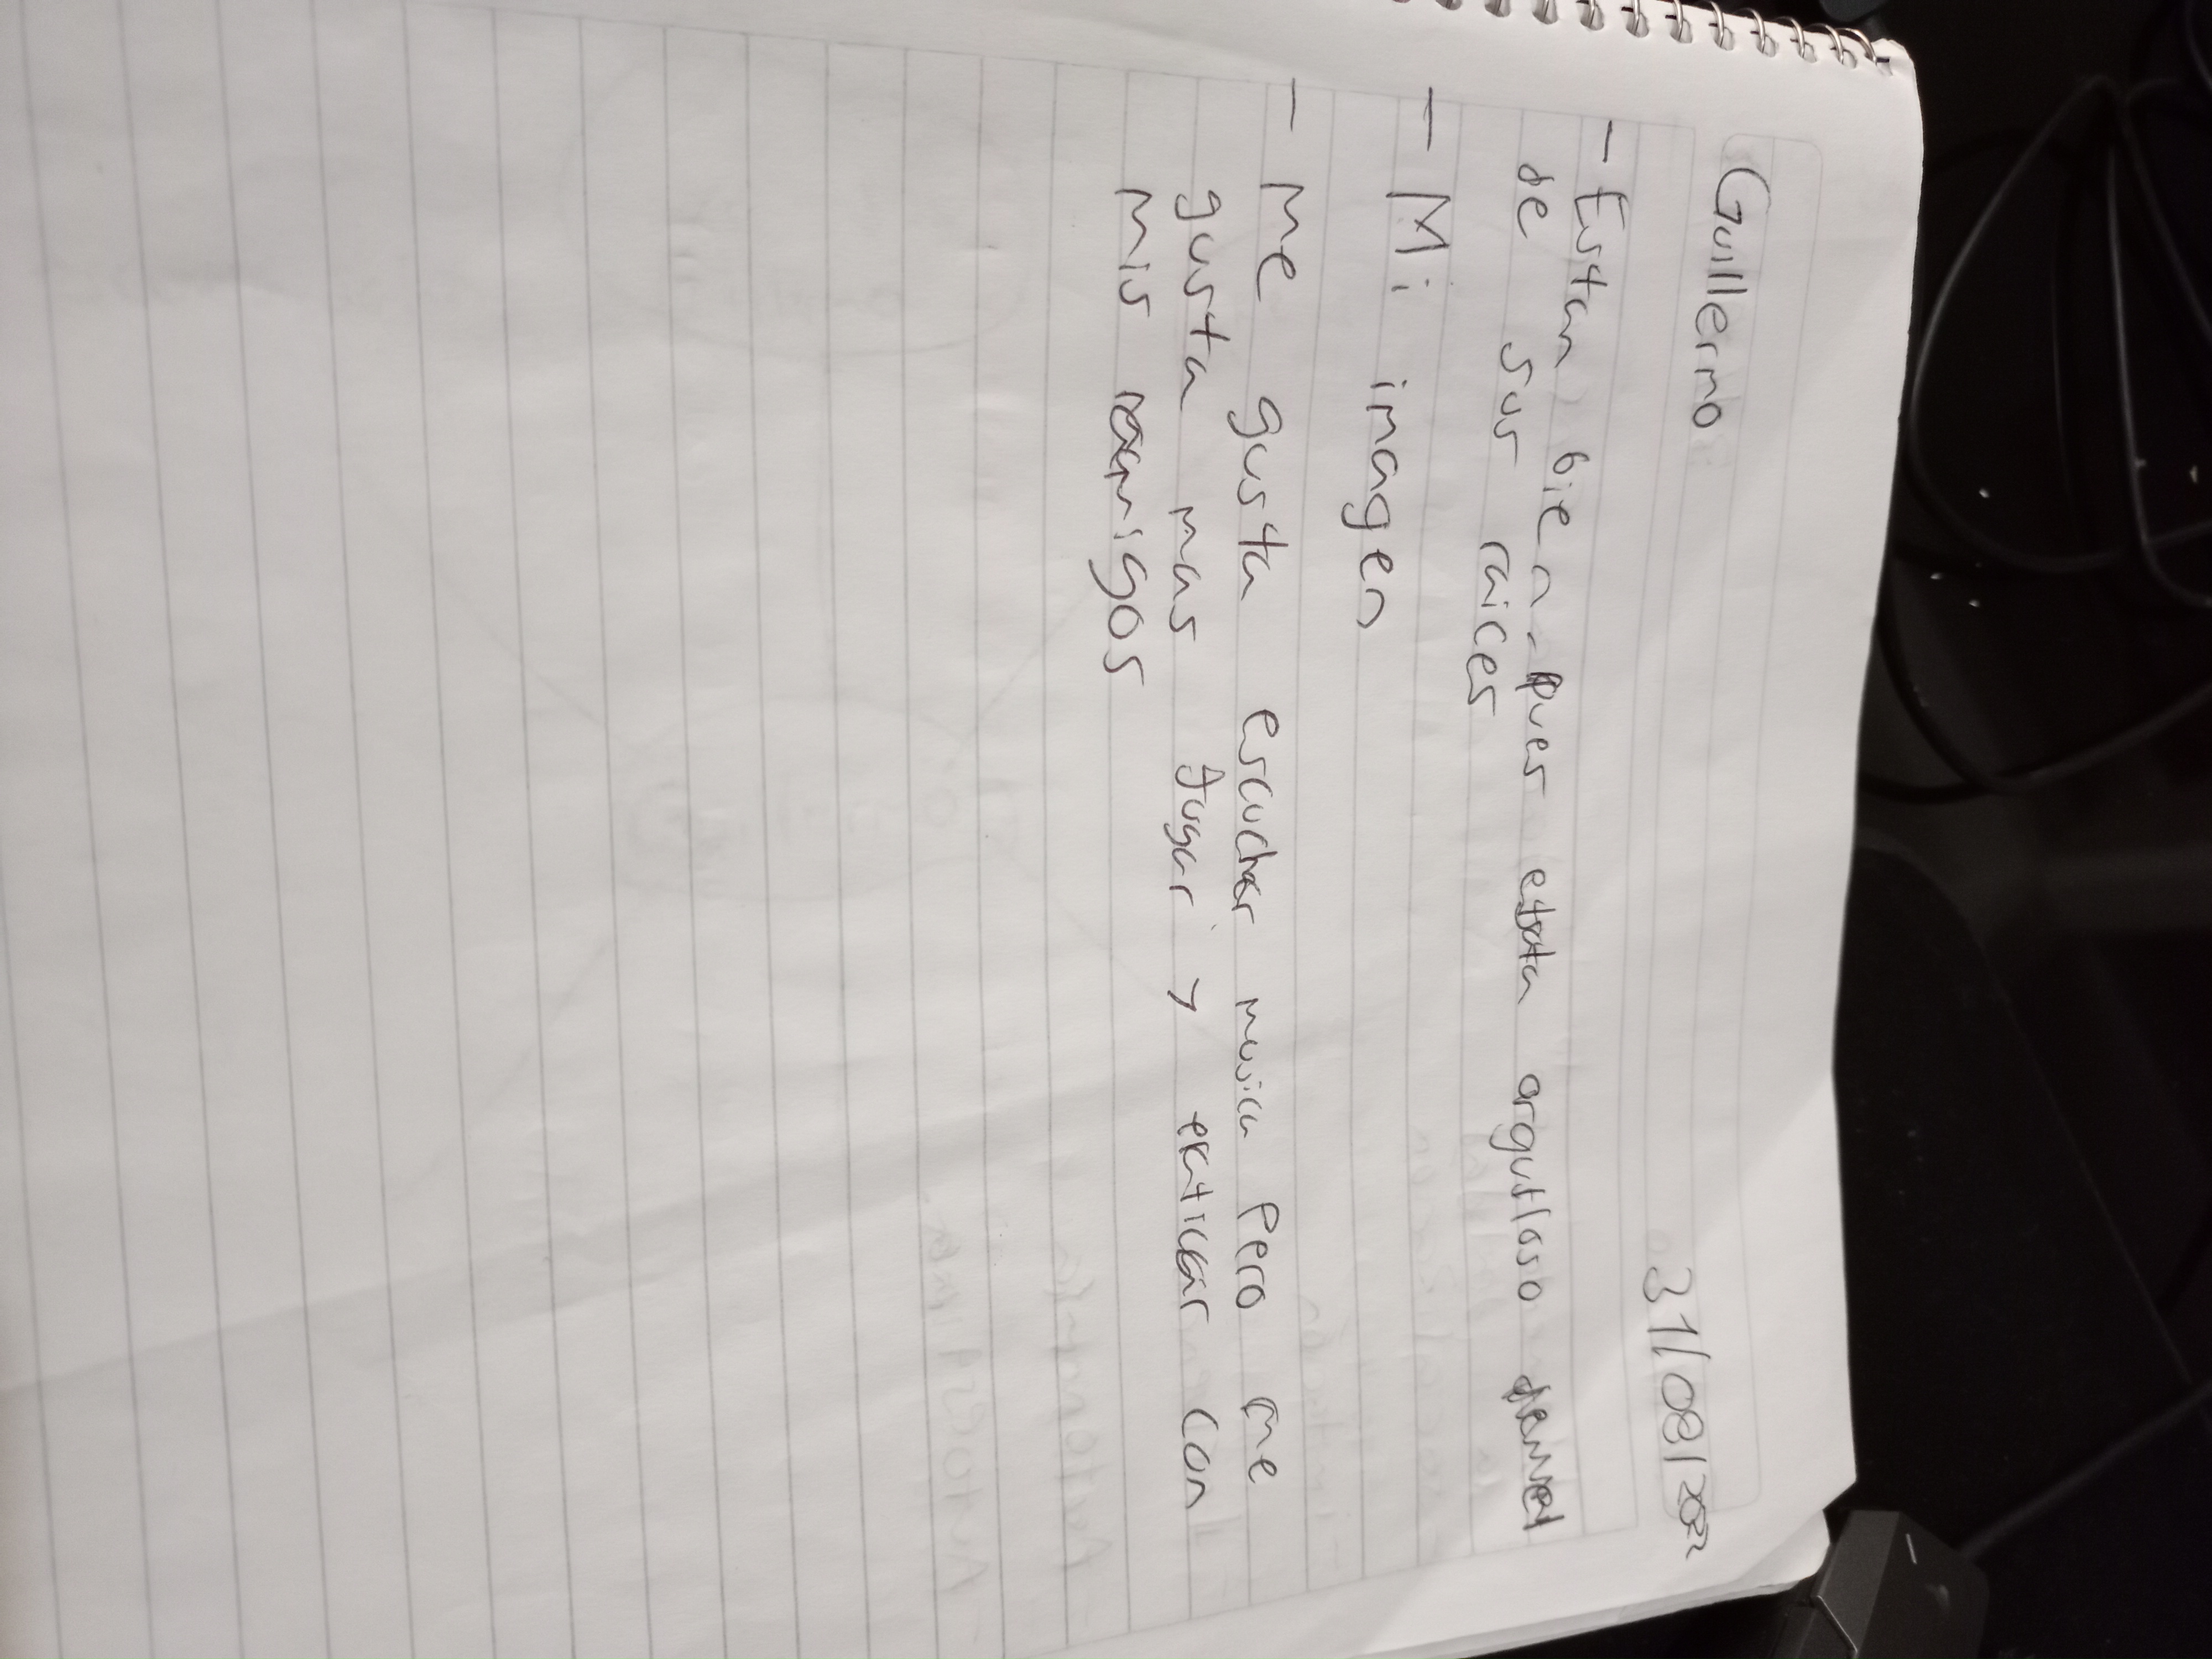 Guillermo 31/08/2022
- Estan bien pues esta argulloso
de sus raices
- Mi imagen
- Me gusta escuchar musica Pero me
gusta mas Jugar y con
mis amigos